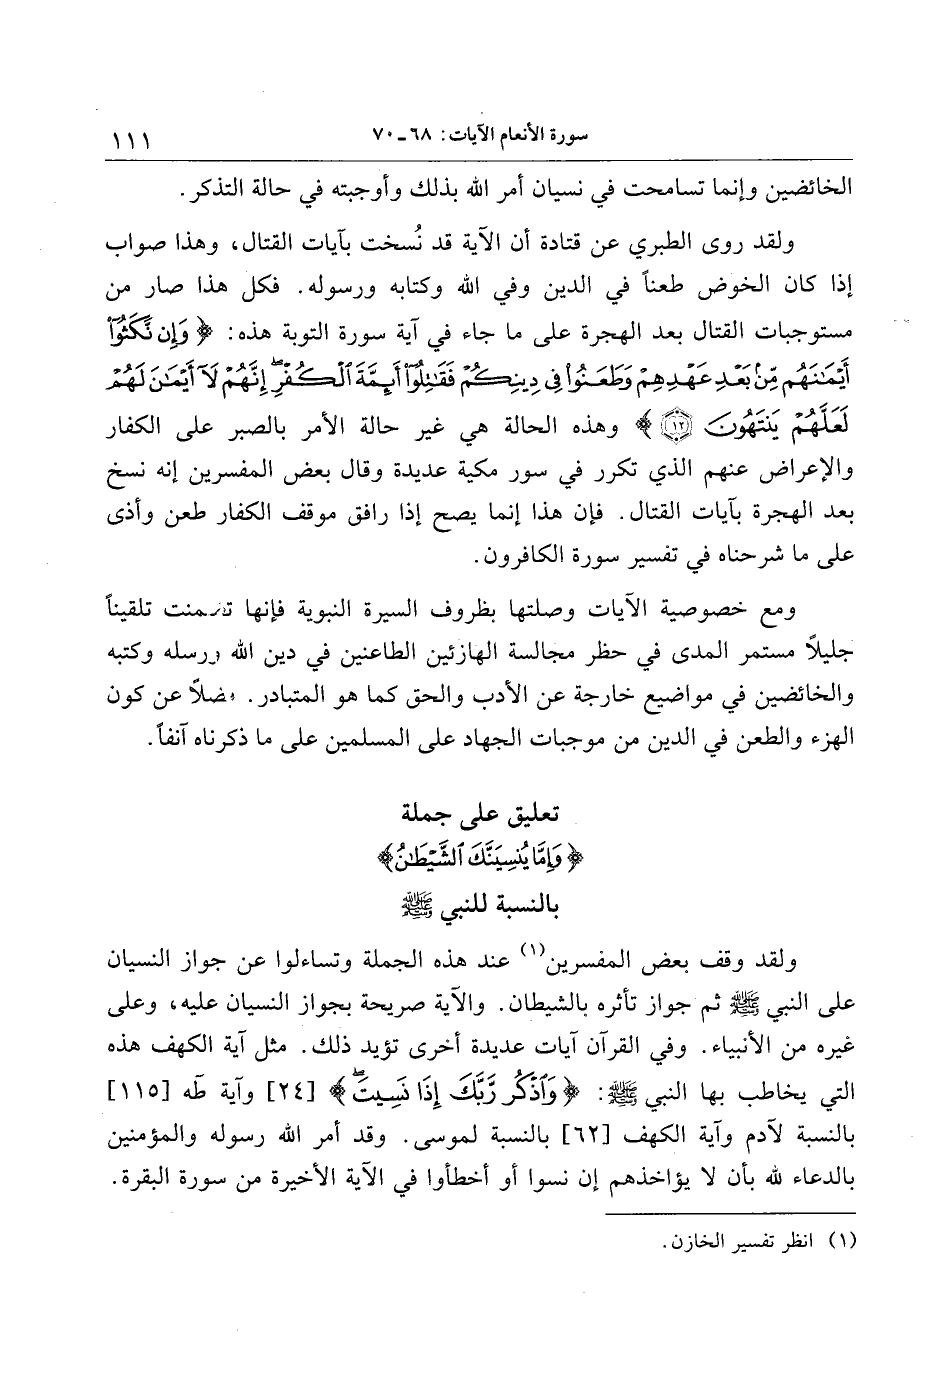 سورة الأنعام الآيات: ٦٨ـ٧٠ ١١١
الخائضين وإنما تسامحت في نسيان أمر الله بذلك وأوجبته في حالة التذكر.
ولقد روى الطبري عن قتادة أن الآية قد نُسخت بآيات القتال، وهذا صواب
إذا كان الخوض طعناً في الدين وفي الله وكتابه ورسوله. فكل هذا صار من
مستوجبات القتال بعد الهجرة على ما جاء في آية سورة التوبة هذه: ﴿ وَإِن نَّكَثُوٓاْ
أَيۡمَٰنَهُم مِّنۢ بَعۡدِ عَهۡدِهِمۡ وَطَعَنُواْ فِي دِينِكُمۡ فَقَٰتِلُوٓاْ أَئِمَّةَ ٱلۡكُفۡرِ إِنَّهُمۡ لَآ أَيۡمَٰنَ لَهُمۡ
لَعَلَّهُمۡ يَنتَهُونَ ١٢ ﴾ وهذه الحالة هي غير حالة الأمر بالصبر على الكفار
والإعراض عنهم الذي تكرر في سور مكية عديدة وقال بعض المفسرين إنه نسخ
بعد الهجرة بآيات القتال. فإن هذا إنما يصح إذا رافق موقف الكفار طعن وأذى
على ما شرحناه في تفسير سورة الكافرون.
ومع خصوصية الآيات وصلتها بظروف السيرة النبوية فإنها تضمنت تلقيناً
جليلاً مستمر المدى في حظر مجالسة الهازئين الطاعنين في دين الله ورسله وكتبه
والخائضين في مواضيع خارجة عن الأدب والحق كما هو المتبادر. فضلاً عن كون
الهزء والطعن في الدين من موجبات الجهاد على المسلمين على ما ذكرناه آنفاً.
تعليق على جملة
﴿ وَإِمَّا يُنسِيَنَّكَ ٱلشَّيۡطَٰنُ﴾
بالنسبة للنبي ﷺ
ولقد وقف بعض المفسرين(١) عند هذه الجملة وتساءلوا عن جواز النسيان
على النبي ﷺ ثم جواز تأثره بالشيطان. والآية صريحة بجواز النسيان عليه، وعلى
غيره من الأنبياء. وفي القرآن آيات عديدة أخرى تؤيد ذلك. مثل آية الكهف هذه
التي يخاطب بها النبي ﷺ: ﴿ وَٱذۡكُر رَّبَّكَ إِذَا نَسِيتَۖ﴾ [٢٤] وآية طه [١١٥]
بالنسبة لآدم وآية الكهف [٦٢] بالنسبة لموسى. وقد أمر الله رسوله والمؤمنين
بالدعاء لله بأن لا يؤاخذهم إن نسوا أو أخطأوا في الآية الأخيرة من سورة البقرة.
(١) انظر تفسير الخازن.